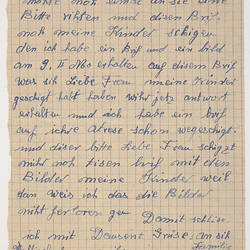 möhte noh einma an sie eine
Bitte rihten und disen Brif
noh meine Kinder schigen
den ich habe ein brf und ein bild
am 9. II erhalten auf disem Brif
was sih Liebe Frau meine Kinder
geschigt habt haben wihr jetz antwort
erhalten und ich habe ein brf
auf ihre adrese schon wegeschigt
und diser bitte Liebe Frau schigt
mihr noh disen brif mit den
Bilder meine Kinder weil
dan weis ich das die Bilder
niht ferloren gen
Damit schlise
ich mit Deusent Grise an sih
Familie